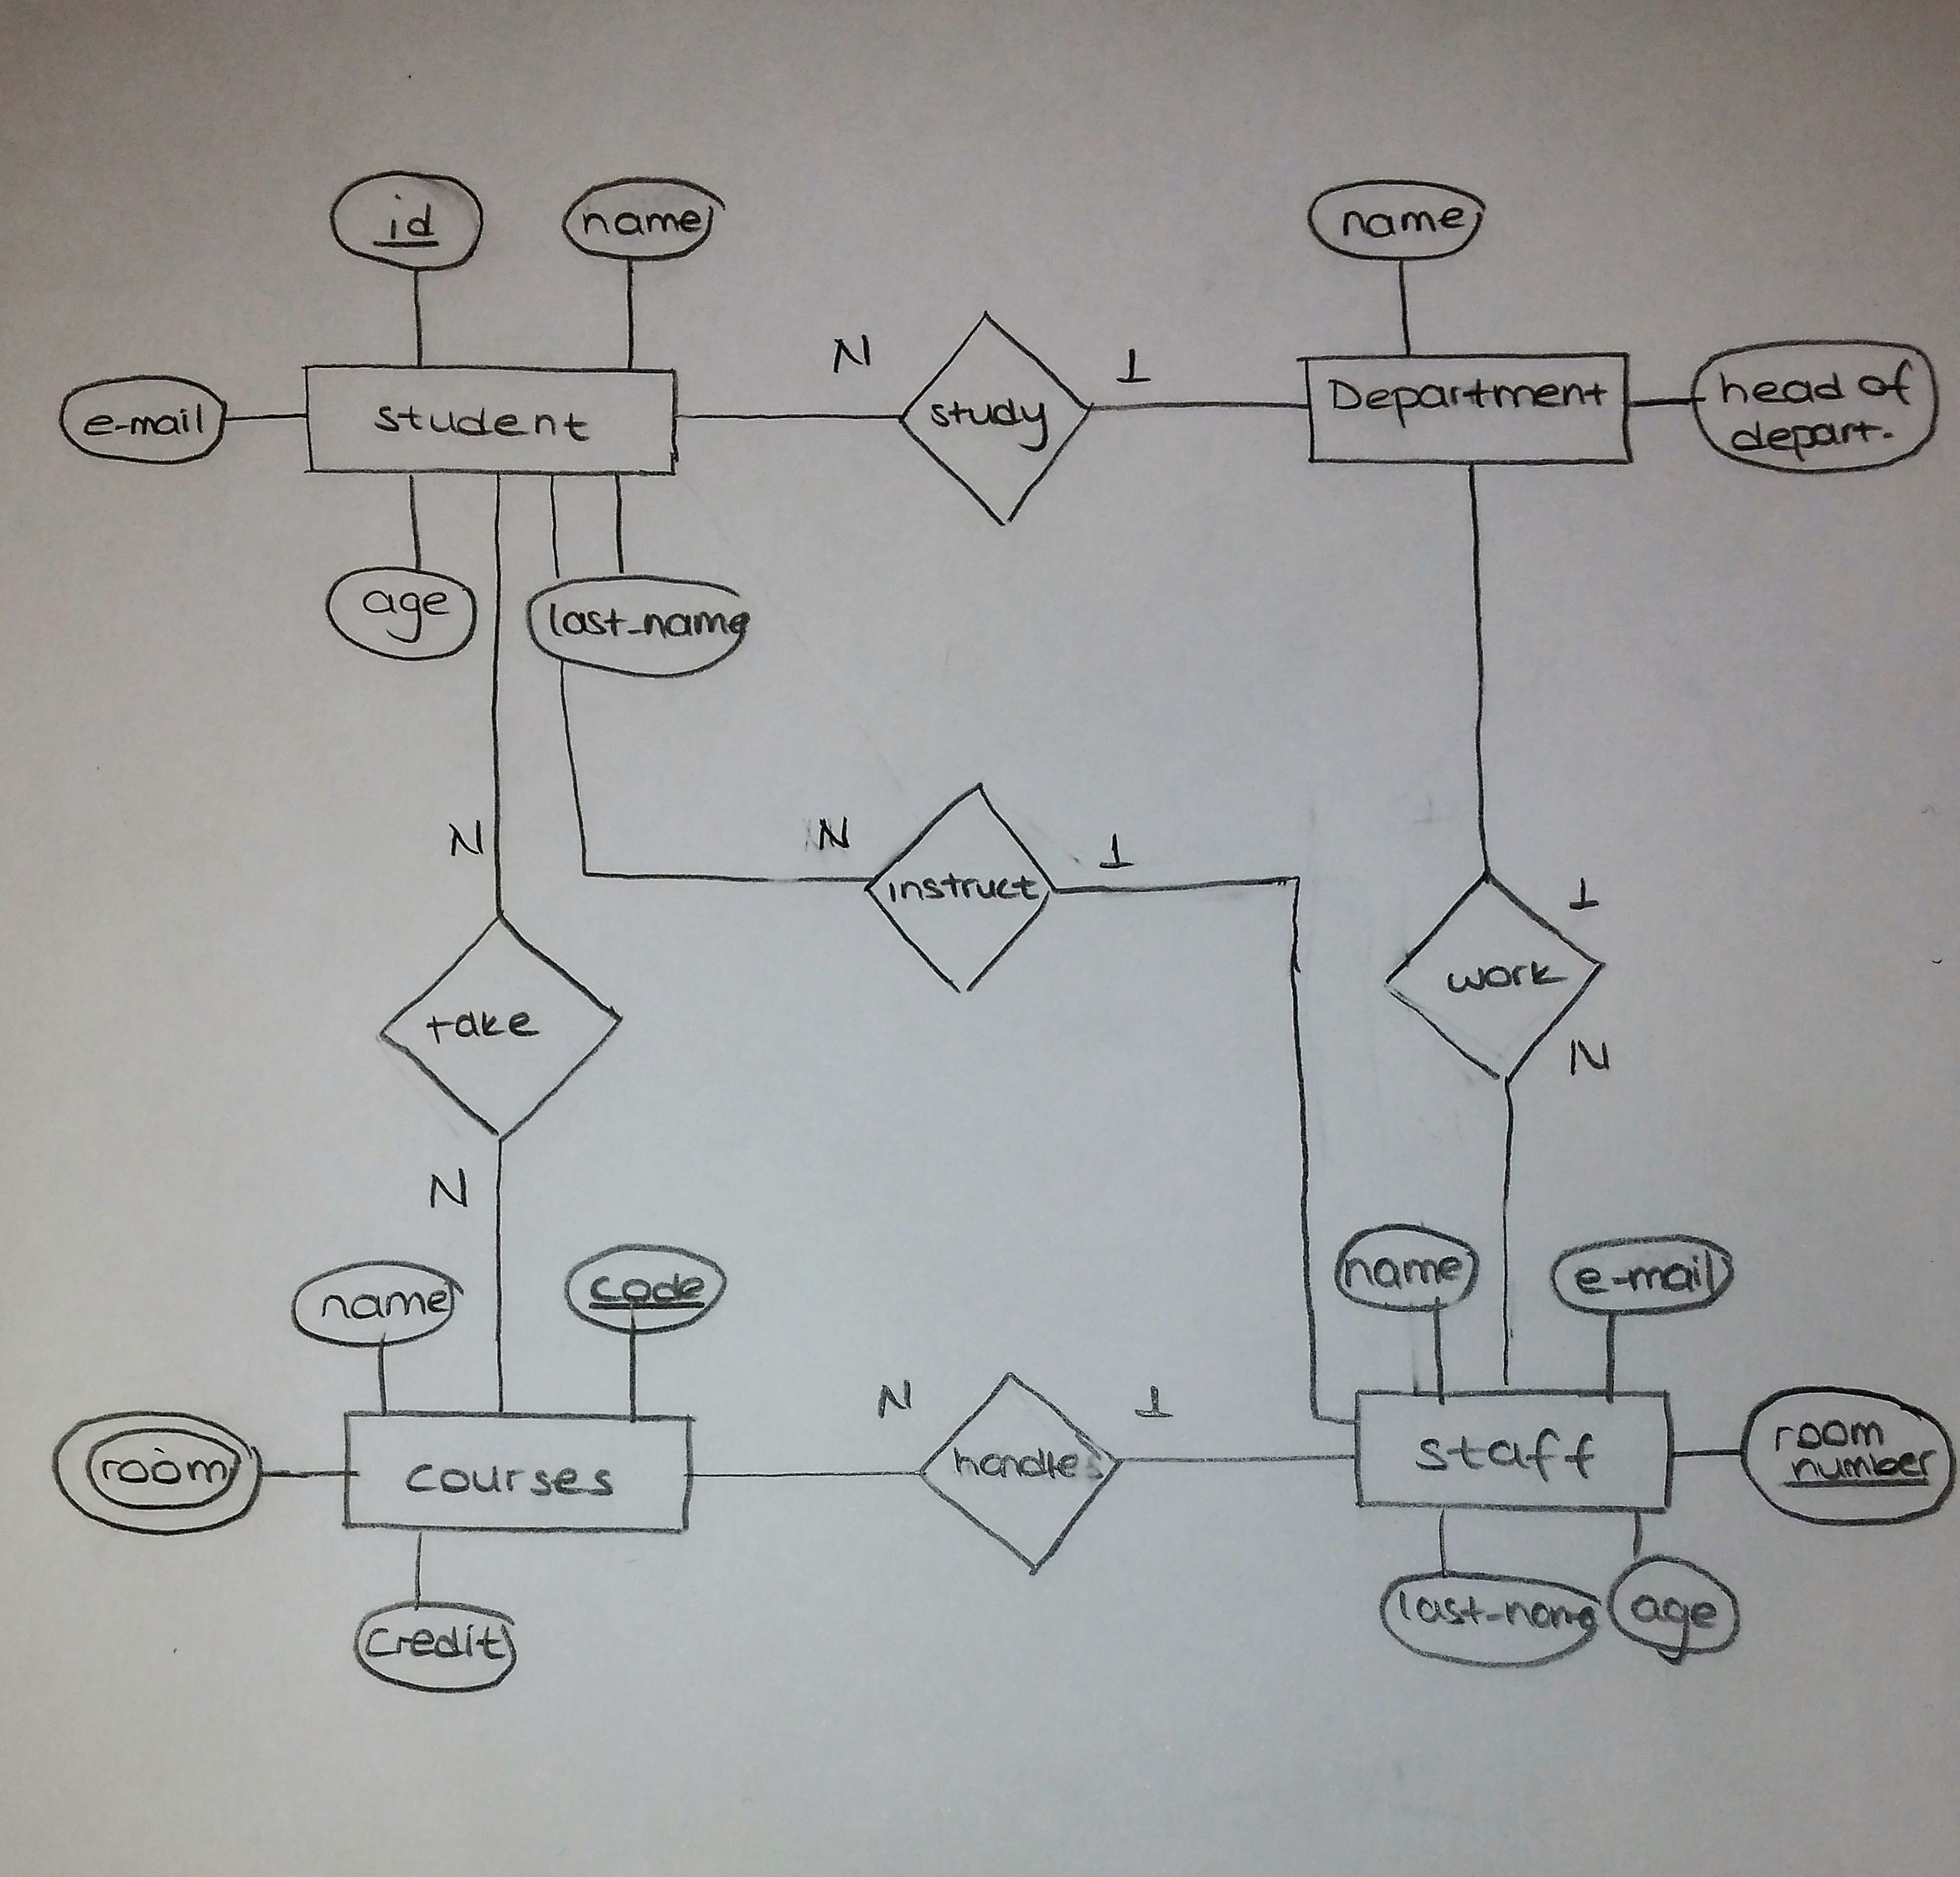 id
name
name
N
1
e-mail
student
study
Department
head of
depart.
age
last-name
N
N
1
instruct
1
work
take
N
N
name
code
name
e-mail
N
1
room
courses
handles
staff
room
number
credit
last-name
age